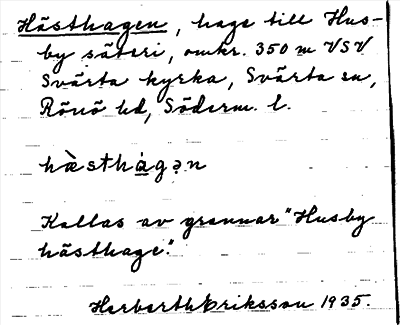 Hästhagen, hage till Hus-
by säteri, omkr. 350 m VSV
Svärta kyrka, Svärta sn,
Rönö hd, Söderm. l.
hὰsthàgən
Kallas av grannar "Husby
hästhage".
Herberth Eriksson 1935.